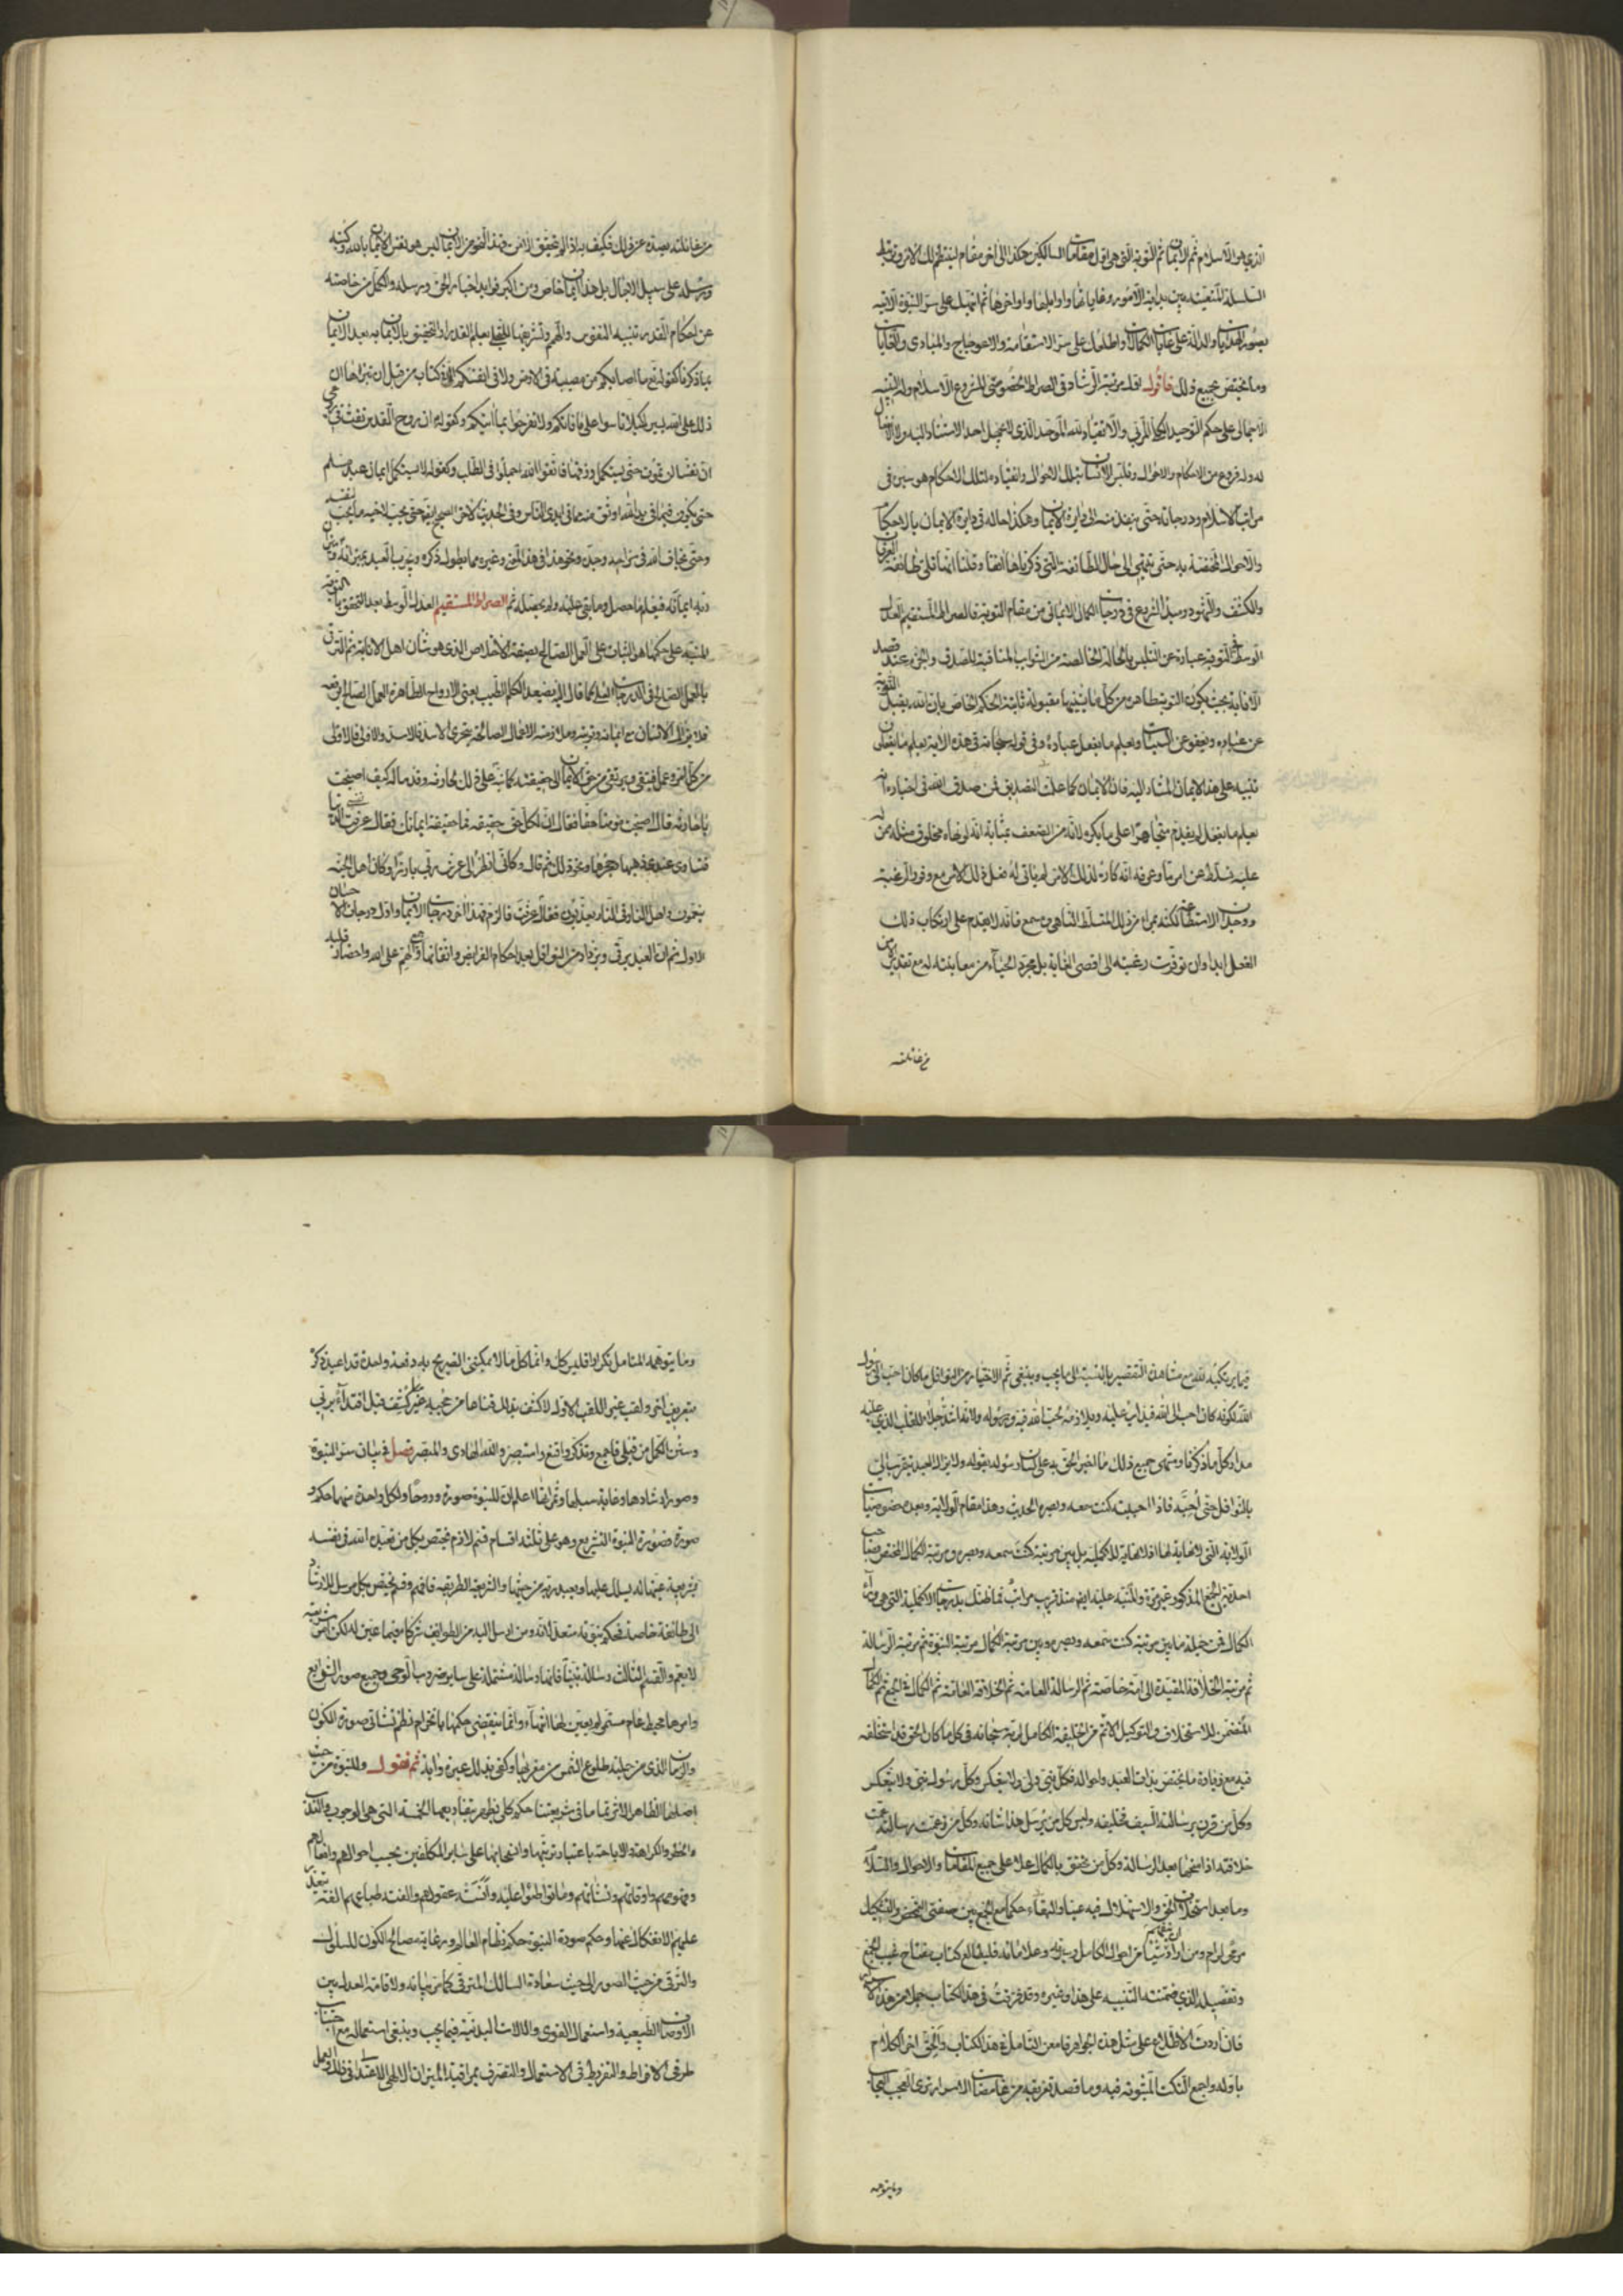 الذي هو الاسلام ثم الايمان ثم التوبة التي هي اول مقامات السالكين هكذا الى اخر مقام لينتظم لك الامر وترتبط
السلسلة المتعينة بين بداية الامور وغاياتها واوايلها واواخرها ثم انبهك على سر النبوة الآتية
بصور الهدايات والدالة على غايات الكمالات واطلعك على سر الاستقامة والاعوجاج والمبادى والغايات
وما يختص بجميع ذلك فاقول اول مرتبة الرشاد في الصراط الخصوصي المشروع الاسلام وله التنبيه
الاجمالي على حكم التوحيد الكلي المرتبي والانقياد لله الموجد الذي لا يجهل احد الاستناد اليه والامتثال
له وله فروع من الاحكام والاحوال وتلبس الانسان بتلك الاحوال وانقياده لتلك الاحكام هو سير في
مراتب الاسلام ودرجاته حتى ينفذ منه الى دائرة الايمان وهكذا حاله في دايرة الايمان بالاحكام
والاحوال المختصة به حتى ينتهي الى حال الطائفة التي ذكرناها آنفا وقلنا انها قبلة طائفة العرفان
والكشف والشهود ومبدأ الشروع في درجات الكمال الايماني من مقام التوبة فالصراط المستقيم العدل
الوسط في التوبة عبارة عن التلبس بالحالة الخالصة من الشوايب المنافية للصدق والجزم عند قصد
الانابة بحيث يكون التوبة طاهرة من كل ما يشينها مقبولة ثابتة الحكم الخاص بان الله يقبل التوبة
عن عباده ويعفو عن السيئات ويعلم ما يفعل عباده وفي قوله سبحانه في هذه الاية يعلم ما يفعلون
تنبيه على هذا الايمان المشار اليه فان الايمان كما علمت التصديق فمن صدق الله في اخباره انه
يعلم ما يفعل لم يقدم متجاهرا على ما يكره لانه من الضعف بمثابة انه لو نهاه مخلوق مثله من له
عليه تسلط عن امر ما وعرف انه كاره لذلك الامر لم يتأتى له فعل ذلك الامر مع وفور الرغبة
ووجدان الاستطاعة لكنه بمراء من ذلك المتسلط الناهي ومسمع فانه لا يقدم على ارتكاب ذلك
الفعل ابدا وان توفرت رغبته الى اقصى الغاية بل مجرد الحياء من معاينته له مع تقدير الامن
من غائلته
من غائلته يصده عن ذلك فكيف به اذا لم يتحقق الامن فهذا النحو من الايمان ليس هو نفس الايمان بالله وكتبه
ورسله على سبيل الاجمال بل هذا ايمان خاص ومن اكبر فوايد اخبارات الحق ورسله والكمل من خاصته
عن احكام القدر تنبيه النفوس والهمم وتشريفها للتحلي بعلم القدر او التحقق بالايمان به بعد الايمان
بما ذكرنا كقوله تع ما اصابكم من مصيبة في الارض ولا في انفسكم الا في كتاب من قبل ان نبراها ان
ذلك على الله يسير لكيلا تاسوا على ما فاتكم ولا تفرحوا بما اتيكم وكقوله ان روح القدس نفث في روعي
ان نفسا لن تموت حتى يستكمل رزقها فاتقوا الله اجملوا في الطلب وكقوله لا يستكمل ايمان عبد مسلم
حتى يكون فيما في يد الله اوثق منه مما في ايدي الناس وفي الحديث الاخر الصحيح ايضا حتى يحب لاخيه ما يحب لنفسه
وحتى يخاف الله في مزاحه وجده ونحو هذا في هذا النحو وغيره مما يطول ذكره ويجرب العبد بميزانه
ربه ايمانه فيعلم ما حصل وما بقي عليه ولم يحصله ثم الصراط المستقيم العدل الوسط بعد التحقق بالتوبة
المنبه على حكمها هو الثبات على العمل الصالح بصفة الاخلاص الذي هو شان اهل الانابة ثم الترقي
بالعمل الصالح في الدرجات العلى كما قال اليه يصعد الكلم الطيب يعني الارواح الطاهرة والعمل الصالح يرفعه
فلا يزال الانسان مع ايمانه وتوبته وملازمته الاعمال الصالحة يتحرى الاسد فالاسد والاولى فالاولى
من كل امر وعمل فيتقي ويرتقي من حق الايمان الى حقيقته كما نبه على ذلك بحارثة وقد ساله كيف اصبحت
يا حارثة قال اصبحت مؤمنا حقا فقال ان لكل حق حقيقة فما حقيقة ايمانك فقال عزفت نفسي الدنيا
فتساوى عندي ذهبها وحجرها ونحو ذلك ثم قال وكاني انظر الى عرش ربي بارزا وكان اهل الجنة
ينعمون واهل النار في النار يعذبون فقال عرفت فالزم فهذا اخر درجات الايمان واول درجات الاحسان
الاول ثم ان العبد يرقى ويزداد من النوافل بعد احكام الفرايض واتقانها وجمع الهم على الله واحضار قلبه
فيما يرتكبه لله مع مشاهدة التقصير بالنسبة الى ما يجب وينبغي ثم الاختيار من النوافل ما كان احب الى رسول
الله لكونه كان احب الى الله فيدأب عليه ويلازمه محبة الله فيه ورسوله ولانه اشد جلاء للقلب الذي عليه
مدار كل ما ذكرنا ومنتهى جميع ذلك ما اخبر الحق به على لسان رسوله بقوله ولا يزال العبد يتقرب الي
بالنوافل حتى احبه فاذا احببته كنت سمعه وبصره الحديث وهذا مقام الولاية وبعده خصوصيات
الولاية التي لا نهاية لها اذ لا نهاية للاكملية بل بين مرتبة كنت سمعه وبصره ومرتبة الكمال المختص بصاحب
احدية الجمع المذكور غير مرة والمنبه عليه ايضا منذ قريب مراتب فما ظنك بدرجات الاكملية التي هي وراء
الكمال فمن جملة ما بين مرتبة كنت سمعه وبصره وبين مرتبة الكمال مرتبة النبوة ثم مرتبة الرسالة
ثم مرتبة الخلافة المقيدة الى امة خاصة ثم الرسالة العامة ثم الخلافة العامة ثم الكمال في الجمع ثم الكمال
المتضمن للاستخلاف والتوكيل الاتم من الخليفة الكامل لربه سبحانه في كل ما كان الحق قد استخلفه
فيه مع زيادة ما يختص بذات العبد واحواله فكل نبي ولي ولا ينعكس وكل رسول نبي ولا ينعكس
وكل من قرن برسالته السيف فخليفة وليس كل من يرسل هذا شانه وكل من عمت رسالته عمت
خلافته اذا منحها بعد الرسالة وكل من تحقق بالكمال علا على جميع المقامات والاحوال والسلام
وما بعد استخلاف الحق والاستهلاك فيه عينا والبقاء حكما مع الجمع بين صفتي التمحض والتشكيك
مرمى لرام ومن اراد ان يتفهم شيئا من احوال الكامل وسيرته وعلاماته فليطالع كتاب مفتاح غيب الجمع
وتفصيله الذي ضمنته التنبيه على هذا وغيره وقد فرقت في هذا الكتاب جملا من هذا الجنس
فان اردت الاطلاع على مثل هذه الجواهر فامعن التامل في هذا الكتاب والحق اخر الكلام
باوله واجمع النكت المبثوثة فيه وما قصدت تفريقه من غامضات الاسرار ترى العجب العجاب
وما يتوهمه
وما يتوهمه المتامل تكرارا فليس كل وانما كل ما لا يمكنني التصريح به دفعة واحدة قد اعيد ذكره
بتعريف اتم ولقب غير اللقب الاول لاكشف بذلك قناعا من حجبه غير ما كشف قبل اقتداء بربي
وسنن الكمل من قبلي فاجمع وتذكر واقنع واستبصر والله الهادي والمبصر فصل في بيان سر النبوة
وصور ارشادها وغاية سبلها وثمراتها اعلم ان للنبوة صورة وروحا ولكل واحدة منهما حكم و
صورة فصورة النبوة التشريع وهو على ثلثة اقسام قسم لازم مختص بكل من تعبده الله في نفسه
بشريعة عينها له يسلك عليها ويعبد ربه من حيثها والشريعة الطريقة فافهم وقسم يختص بكل مرسل للارشاد
الى طائفة خاصة فحكم نبوته متعد لانه ومن ارسل اليه من الطوائف شركاء فيما عين له لكن امر شريعته
لا يعم والقسم الثالث رسالة نبينا فانها رسالة مشتملة على ساير ضروب الوحي وجميع صور الشرايع
وامرها محيط عام مستمر لم يعين لها انتهاء وانما ينقضي حكمها بانخرام نظم نشاتي صورة الكون
والزمان الذي من جملته طلوع الشمس من مغربها وكفى بذلك عبرة وآية ثم نقول وللنبوة من حيث
اصلها الظاهر الاثر تماما في شريعتنا حكم كلي يظهر بتفاريعه الخمسة التي هي الوجوب والندب
والحظر والكراهة والاباحة باعتبار ترتبها وانسحابها على ساير المكلفين بحسب احوالهم وافعالهم
وفهومهم واوقاتهم ونشاتهم وما تواطئوا عليه وأنست عقولهم والفته طباعهم الفة يتعذر
عليهم الانفكاك عنها وحكم صورة النبوة حكم نظام العالم ورعاية مصالح الكون للسلوك
والترقي من حيث الصور الى حيث سعادة السالك المترقي كما مر بيانه ولاقامة العدل بين
الاوصاف الطبيعية واستعمال القوى والالات البدنية فيما يجب وينبغي استعماله مع اجتناب
طرفي الافراط والتفريط في الاستعمال والتصرف بمراقبة الميزان الالهي الاعتدالي في ذلك والعمل